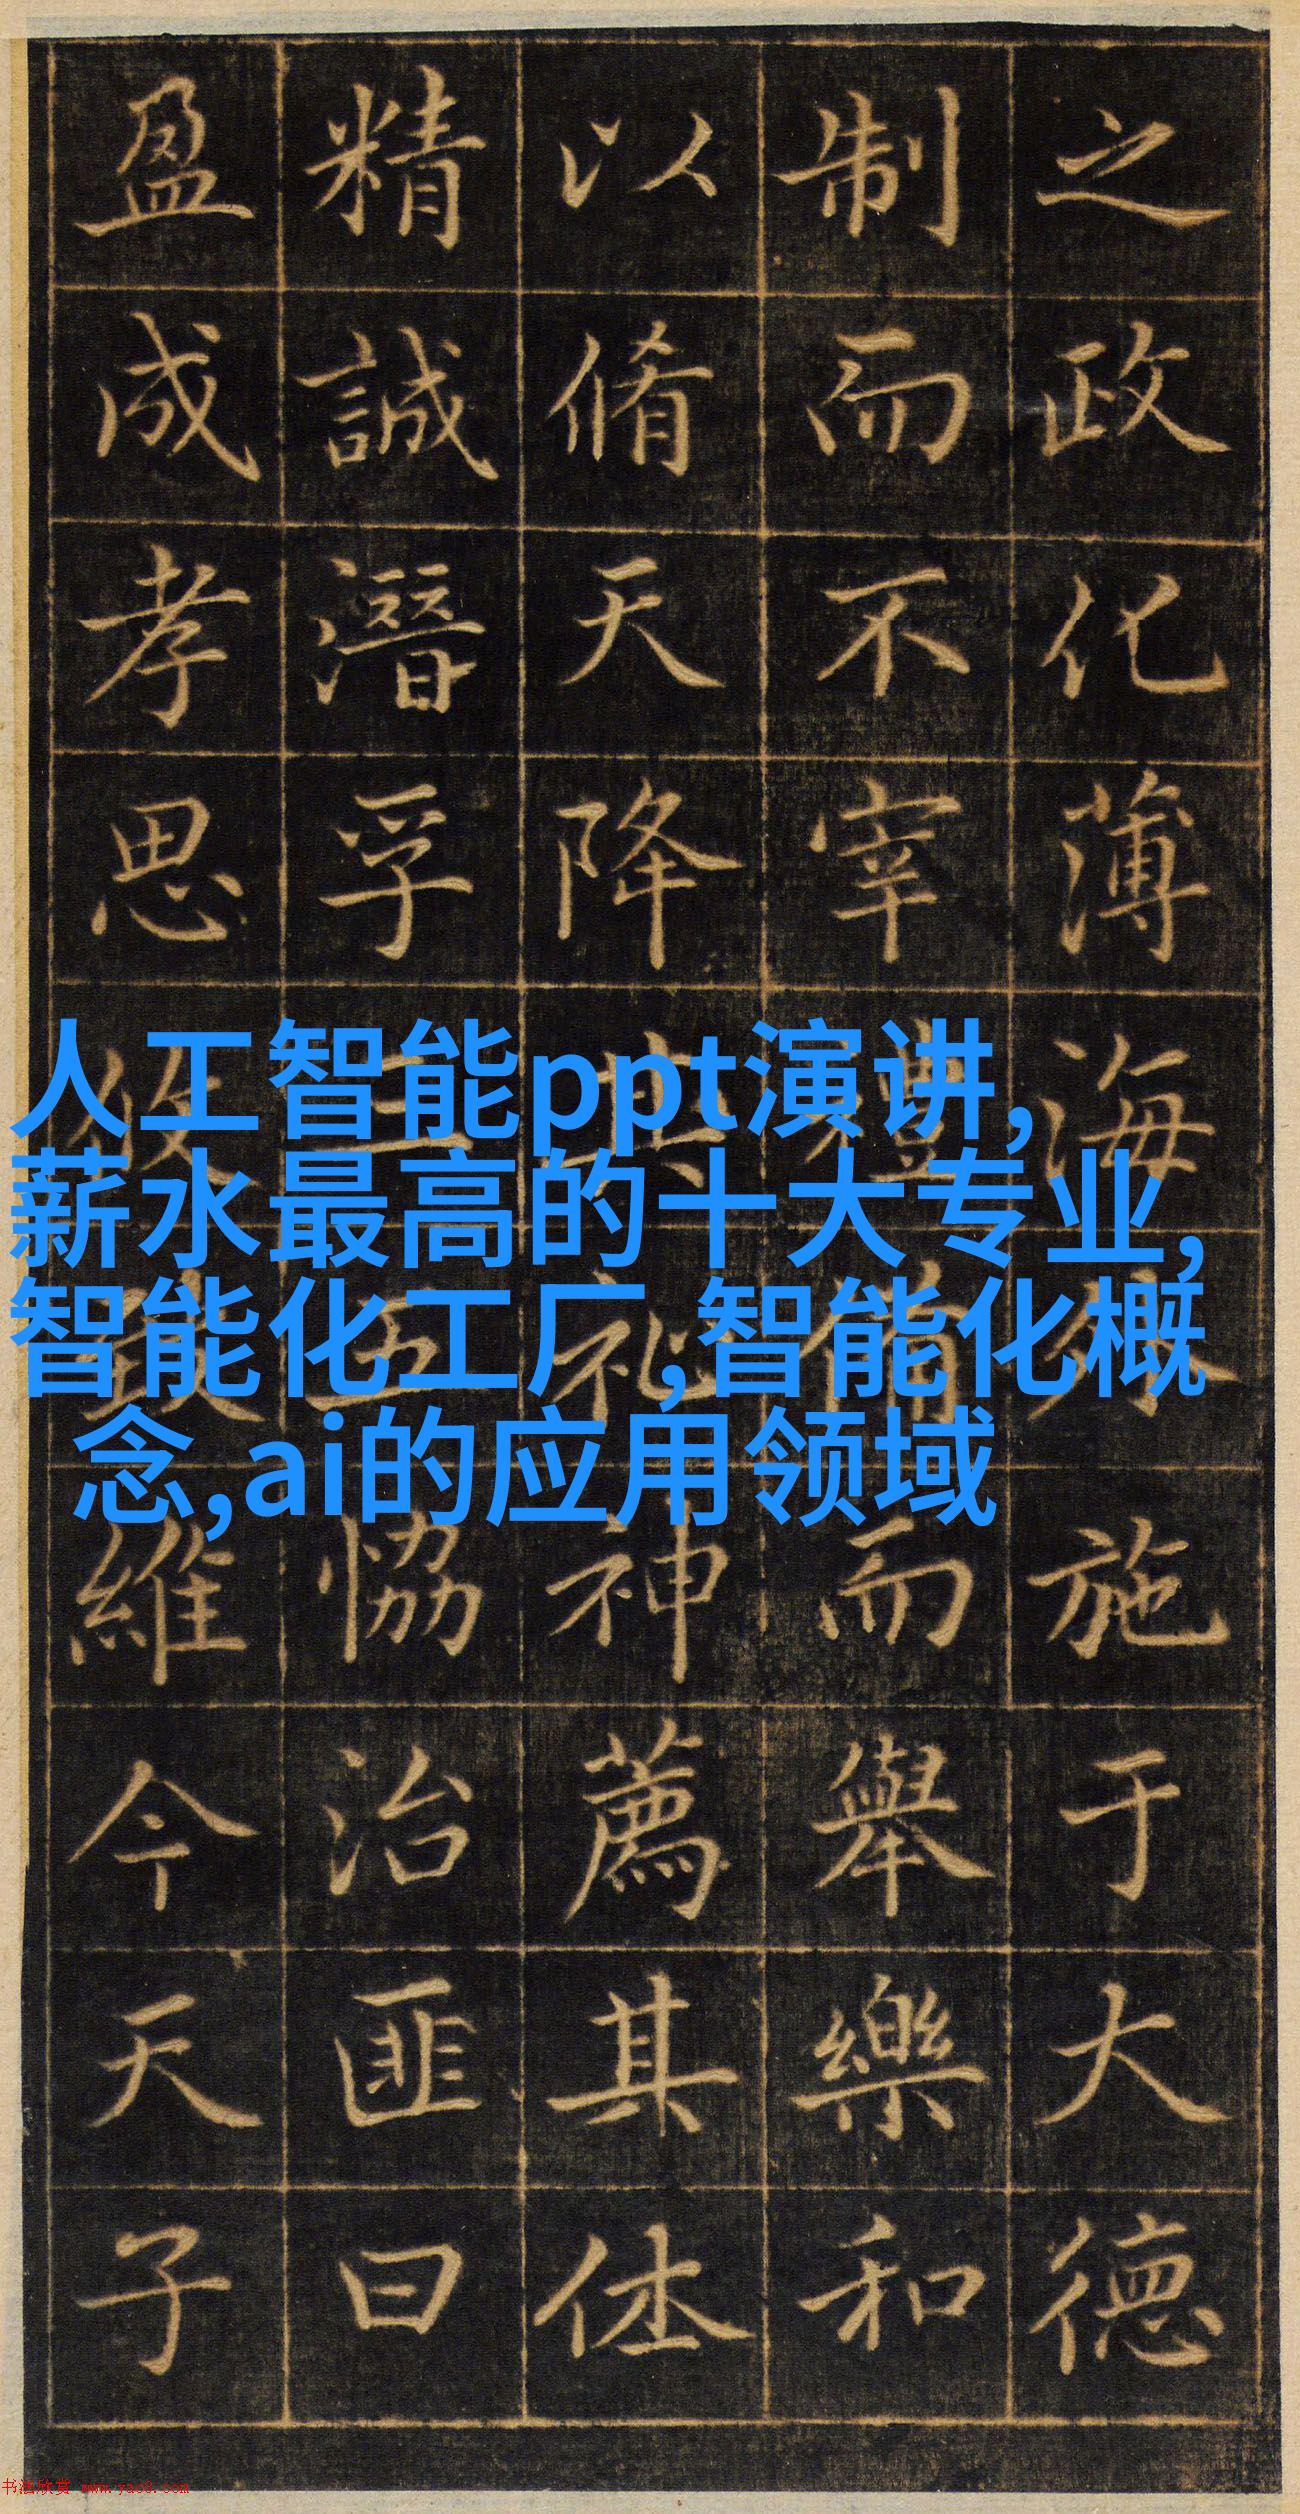 之政化薄海施于大德
制而不宰而舉樂和
以脩天降神薦其休
精誠潛孚三五恊治匪曰
盈成孝思維今天子
人工智能ppt演讲,
薪水最高的十大专业,
智能化工厂,智能化概
念,ai的应用领域
书法欣赏 www.yac8.com